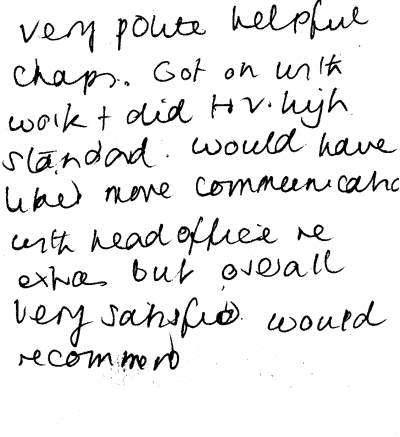 very polite helpful
chaps. Got on with
work + did it v. high
standard. would have
liked more communicatio
with head office re
extras but overall
very satisfied would
recommend